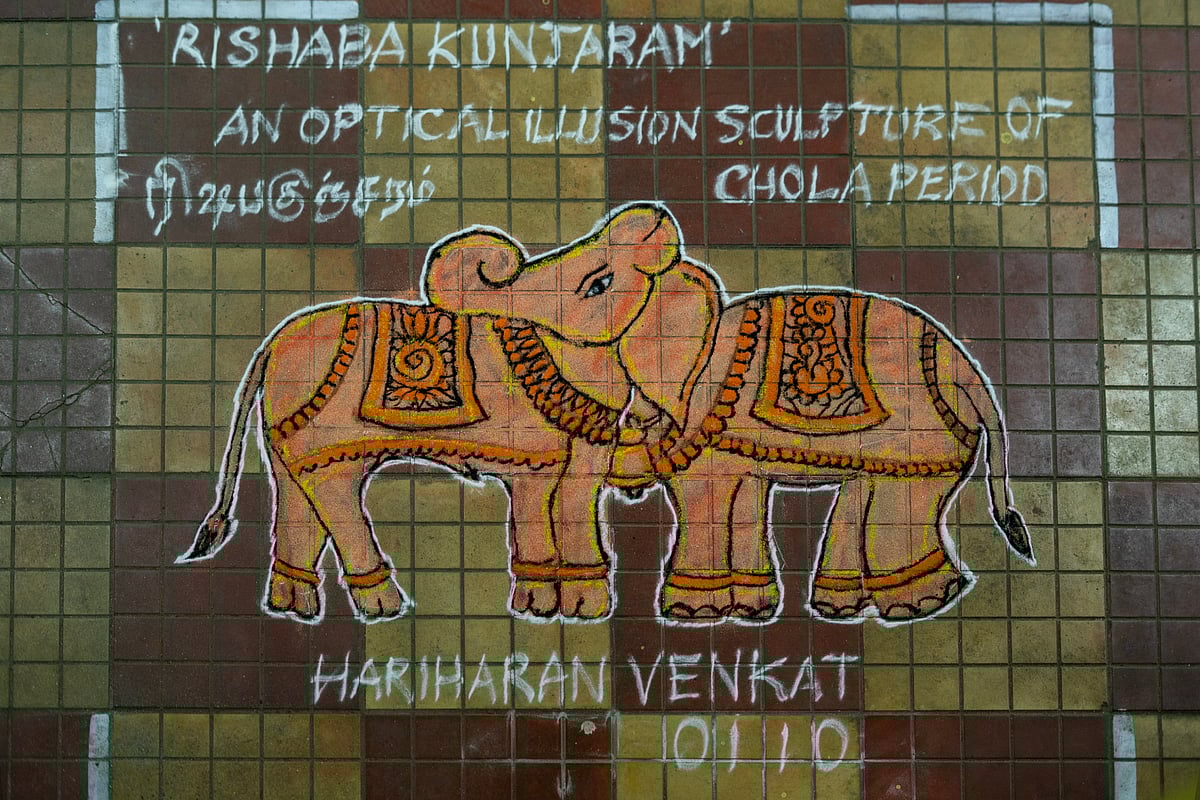 'RISHABA KUNJARAM'
AN OPTICAL ILLUSION SCULPTURE OF
ரிஷபகுஞ்சரம் CHOLA PERIOD
HARIHARAN VENKAT
01110